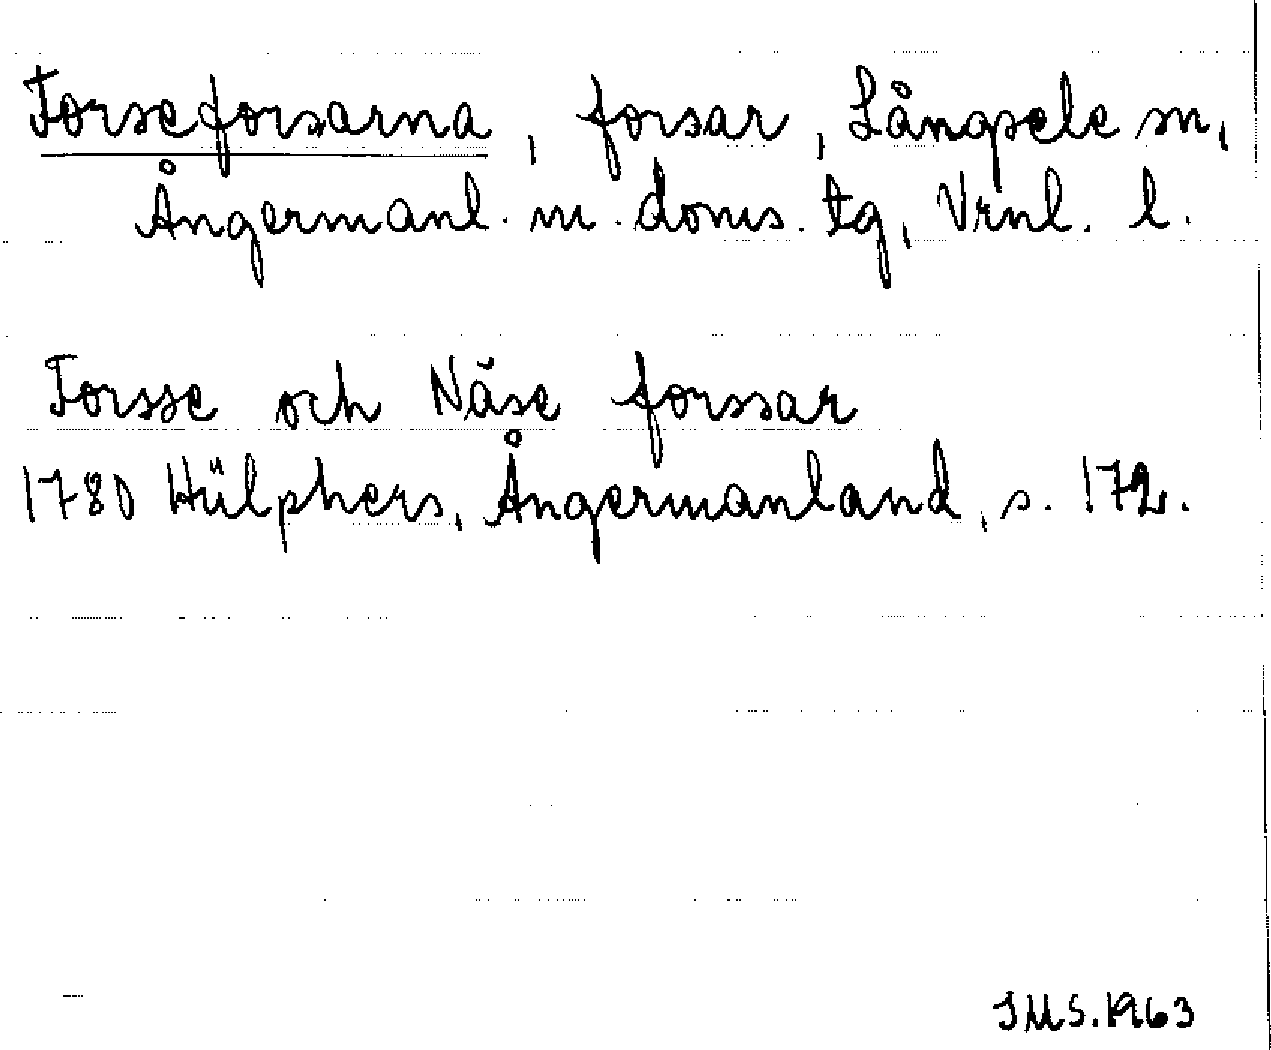 Forseforsarna, forsar, Långsele sn,
Ångermanl. m. doms. tg, Vrnl. l.
Forsse och Näse forssar
1780 Hülphers, Ångermanland, s. 172.
IMS. 1963